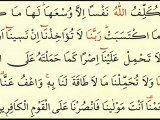 يُكَلِّفُ اللَّهُ نَفْسًا إِلَّا وُسْعَهَا لَهَا مَا كَ
مَا اكْتَسَبَتْ رَبَّنَا لَا تُؤَاخِذْنَا إِن نَّسِينَا أَ
وَلَا تَحْمِلْ عَلَيْنَا إِصْرًا كَمَا حَمَلْتَهُ عَلَى
نَا وَلَا تُحَمِّلْنَا مَا لَا طَاقَةَ لَنَا بِهِ وَاعْفُ عَنَّا
نَا أَنتَ مَوْلَانَا فَانصُرْنَا عَلَى الْقَوْمِ الْكَافِرِينَ